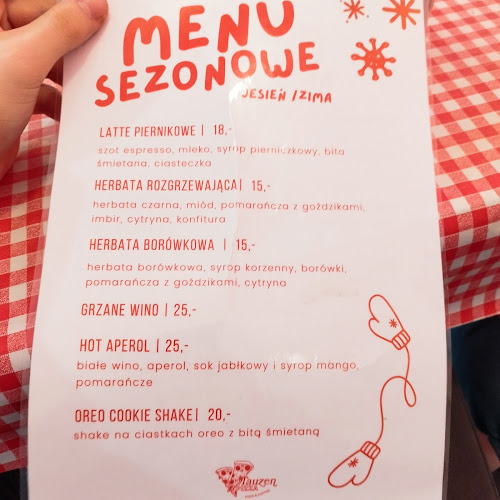 MENU
SEZONOWE
JESIEŃ / ZIMA
LATTE PIERNIKOWE | 18,-
szot espresso, mleko, syrop pierniczkowy, bita
śmietana, ciasteczka
HERBATA ROZGRZEWAJĄCA | 15,-
herbata czarna, miód, pomarańcza z goździkami,
imbir, cytryna, konfitura
HERBATA BORÓWKOWA | 15,-
herbata borówkowa, syrop korzenny, borówki,
pomarańcza z goździkami, cytryna
GRZANE WINO | 25,-
HOT APEROL | 25,-
białe wino, aperol, sok jabłkowy i syrop mango,
pomarańcze
OREO COOKIE SHAKE | 20,-
shake na ciastkach oreo z bitą śmietaną